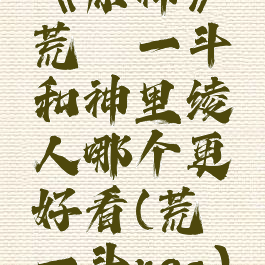 《原神》
荒 一斗
和神里绫
人哪个更
好看(荒
一斗